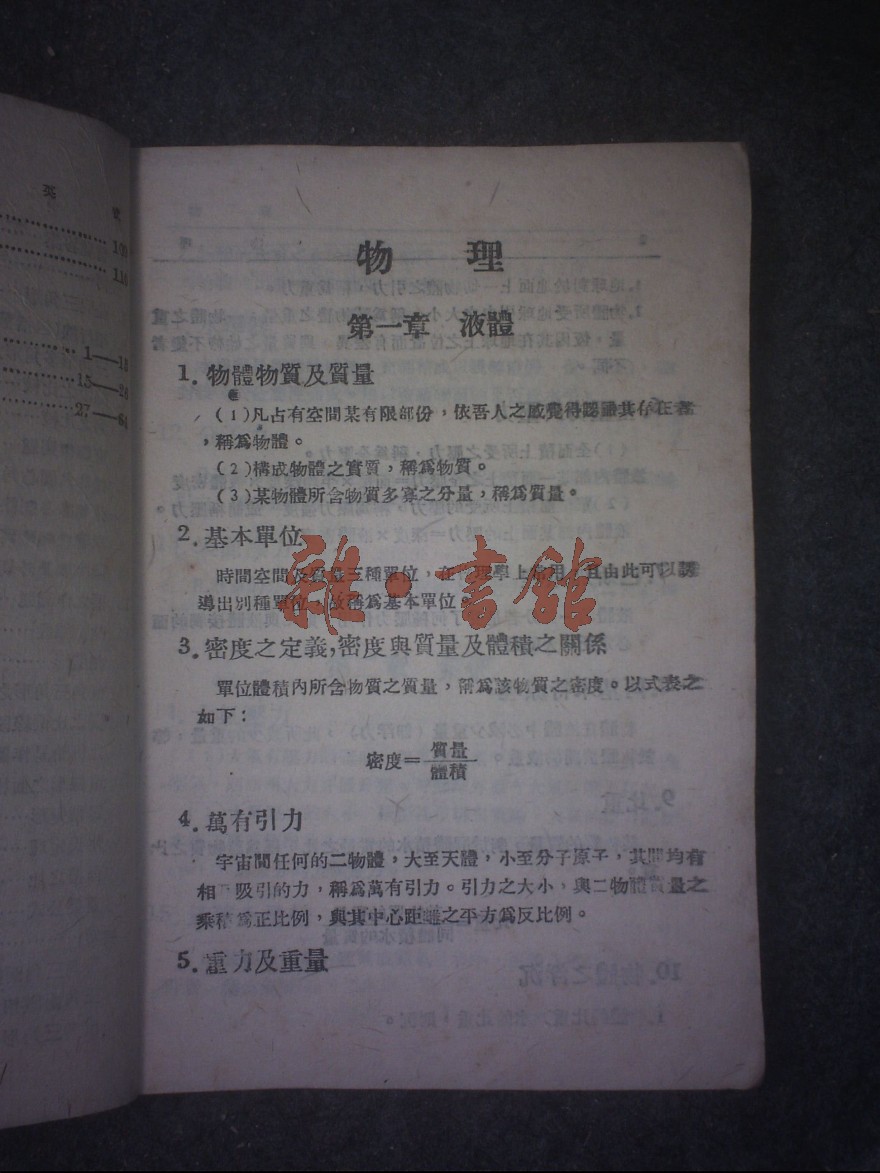 物理
第一章 液體
1. 物體物質及質量
(1)凡占有空間某有限部份,依吾人之感覺得認識其存在者
,稱爲物體。
(2)構成物體之實質,稱爲物質。
(3)某物體所含物質多寡之分量,稱爲質量。
2. 基本單位
時間空間及質量三種單位,在 理學上常用,且由此可以誘
導出別種單位,故稱爲基本單位
雜·書館
3. 密度之定義,密度與質量及體積之關係
單位體積內所含物質之質量,稱爲該物質之密度。以式表之
如下:
密度=質量/體積
4. 萬有引力
宇宙間任何的二物體,大至天體,小至分子原子,其間均有
相 吸引的力,稱爲萬有引力。引力之大小,與二物體質量之
乘積爲正比例,與其中心距離之平方爲反比例。
5. 重力及重量
100
110
1—15
15—26
27—64